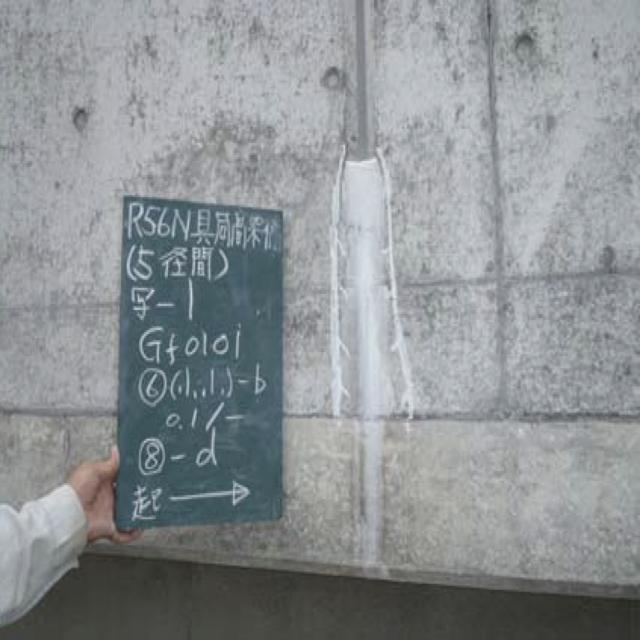 R56N具同高架橋
(5径間)
写-1
Gf0101
⑥(1,,1,)-b
0.1/-
⑧-d
起→